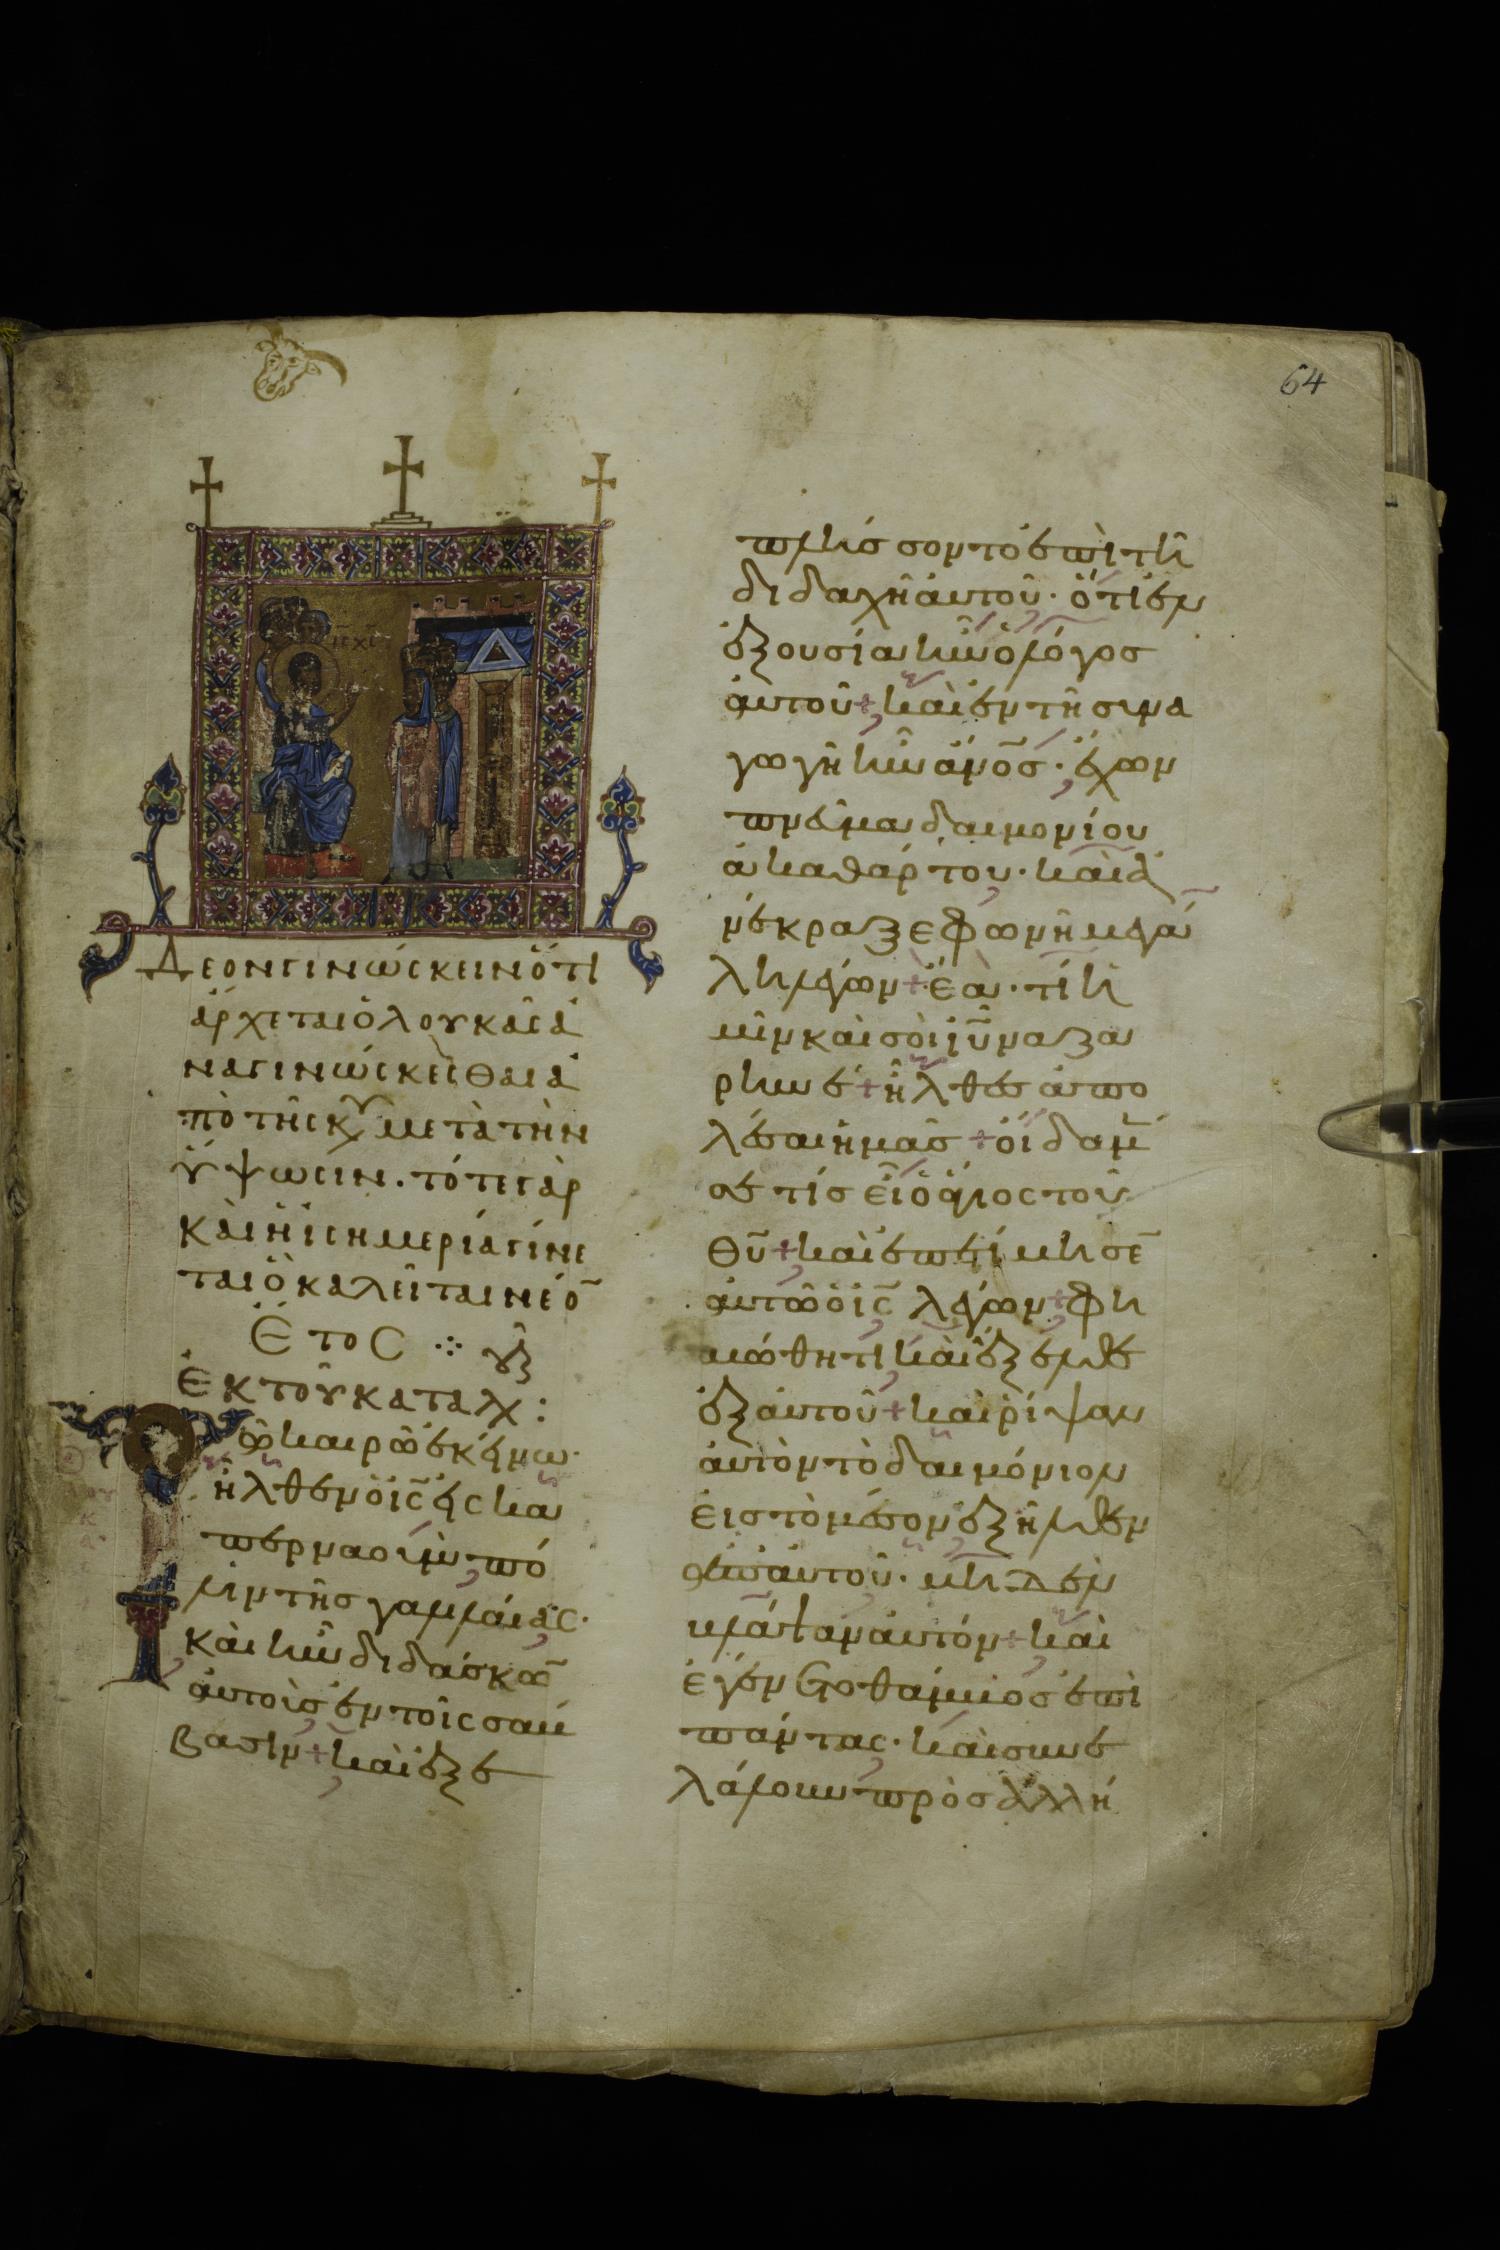 64
ις χς
Δέον γινώσκειν ὅτι
ἄρχεται ὁ λουκᾶς ἀ
ναγινώσκεσθαι ἀ
πὸ τῆς κυ μετὰ τὴν
ὕψωσιν. τότε γὰρ
καὶ ἡ ἰσημερία γίνε
ται ὃ καλεῖται νέο
ἔτος ⁘
ἐκ τοῦ κατὰ λχ:
ῶ καιρῶ ἐκείνω·
ἦλθεν ὁ ις εἰς κα
περναοὺμ πό
λιν τῆς γαλιλαίας·
καὶ ἦν διδάσκω
αὐτοὺς ἐν τοῖς σάβ
βασιν + καὶ ἐξε
πλήσσοντο ἐπὶ τῆ
διδαχῆ αὐτοῦ· ὅτι ἐν
ἐξουσία ἦν ὁ λόγος
αὐτοῦ + καὶ ἐν τῆ συνα
γωγῆ ἦν ἄνος· ἔχων
πνεῦμα δαιμονίου
ἀκαθάρτου· καὶ ἀ
νέκραξε φωνῆ μεγά
λη λέγων + ἔα· τί ἡ
μῖν καὶ σοὶ ιυ ναζα
ρηνέ + ἦλθες ἀπο
λέσαι ἡμᾶς + οἶδα
σε τίς εἶ ὁ ἅγιος τοῦ
θυ + καὶ ἐπετίμησε
αὐτῶ ὁ ις λέγων + φι
μώθητι καὶ ἔξελθε
ἐξ αὐτοῦ + καὶ ῥίψαν
αὐτὸν τὸ δαιμόνιον
εἰς τὸ μέσον ἐξῆλθεν
ἀπ' αὐτοῦ· μηδὲν
βλάψαν αὐτόν + καὶ
ἐγένετο θάμβος ἐπὶ
πάντας· καὶ συνε
λάλουν πρὸς ἀλλή